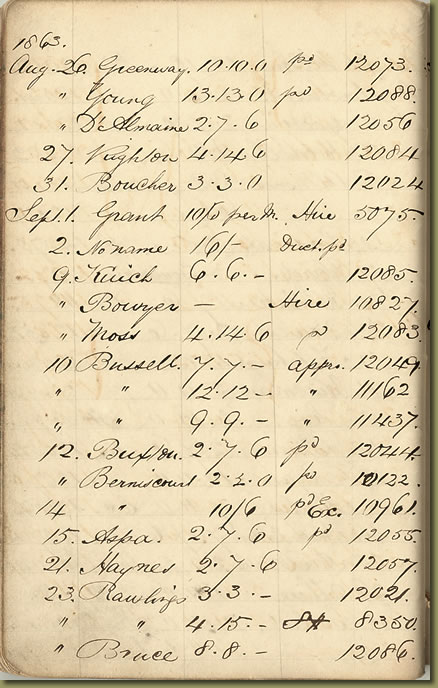 1863.
Aug. 26 Greenway. 10.10.0 pd 12073.
" Young 13.13.0 pd 12088.
" D'Almaine 2.7.6 12056
27. 4.14.6 12084
31. Boucher 3.3.0 12024
Sept. 1. Grant 10/0 per M. Hire 5075.
2. No name 16/- Duet. pd
9. Kuich 6.6.- 12085.
" Bowyer — Hire 10827.
" Moss 4.14.6 pd 12083.
10 Bussell. 7.7.- appro. 12049.
" " 12.12- " 11162
" " 9.9.- " 11437.
12. Buxton. 2.7.6 pd 12044.
" Berniscourt 2.2.0 pd 10122.
14 " 10/6 pd Ex. 10961.
15. Aspa. 2.7.6 pd 12055.
21. Haynes 2.7.6 12057.
23. Rawlings 3.3.- 12021.
" " 4.15.- 8350.
" Bruce 8.8.- 12086.